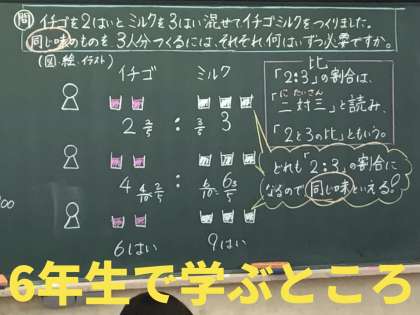 問 イチゴを2はいとミルクを3はい混ぜてイチゴミルクをつくりました。
同じ味のものを、3人分つくるには、それぞれ、何はいずつ必要ですか。
(図・絵・イラスト)
イチゴ ミルク
2 2/5 : 3/5 3
4 4/10=2/5 : 6/10= 6 3/5
6はい 9はい
比
「2:3」の割合は、
に たい さん
「二対三」と読み、
「2と3の比」ともいう。
どれも「2:3」の割合に
なるので同じ味といえる?
6年生で学ぶところ